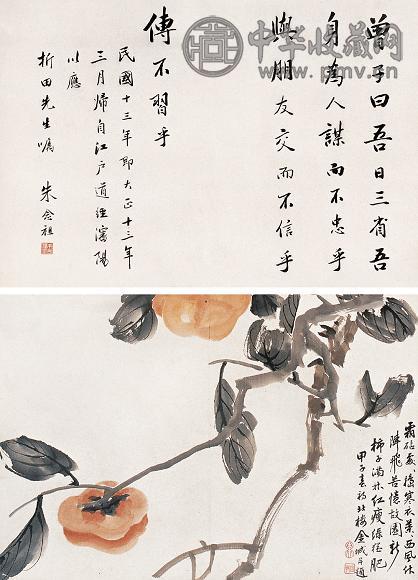 中华收藏网
www.pmv.cn
曾子曰吾日三省吾
身為人謀而不忠乎
與朋友交而不信乎
傳不習乎
民國十三年即大正十三年
三月歸自江戶道經瀋陽
以應
折田先生囑 朱念祖
霜砧處擣寒衣葉西風作
陣飛苦憶故園新
柿子滿林紅瘦綠肥
甲子春初北樓金城